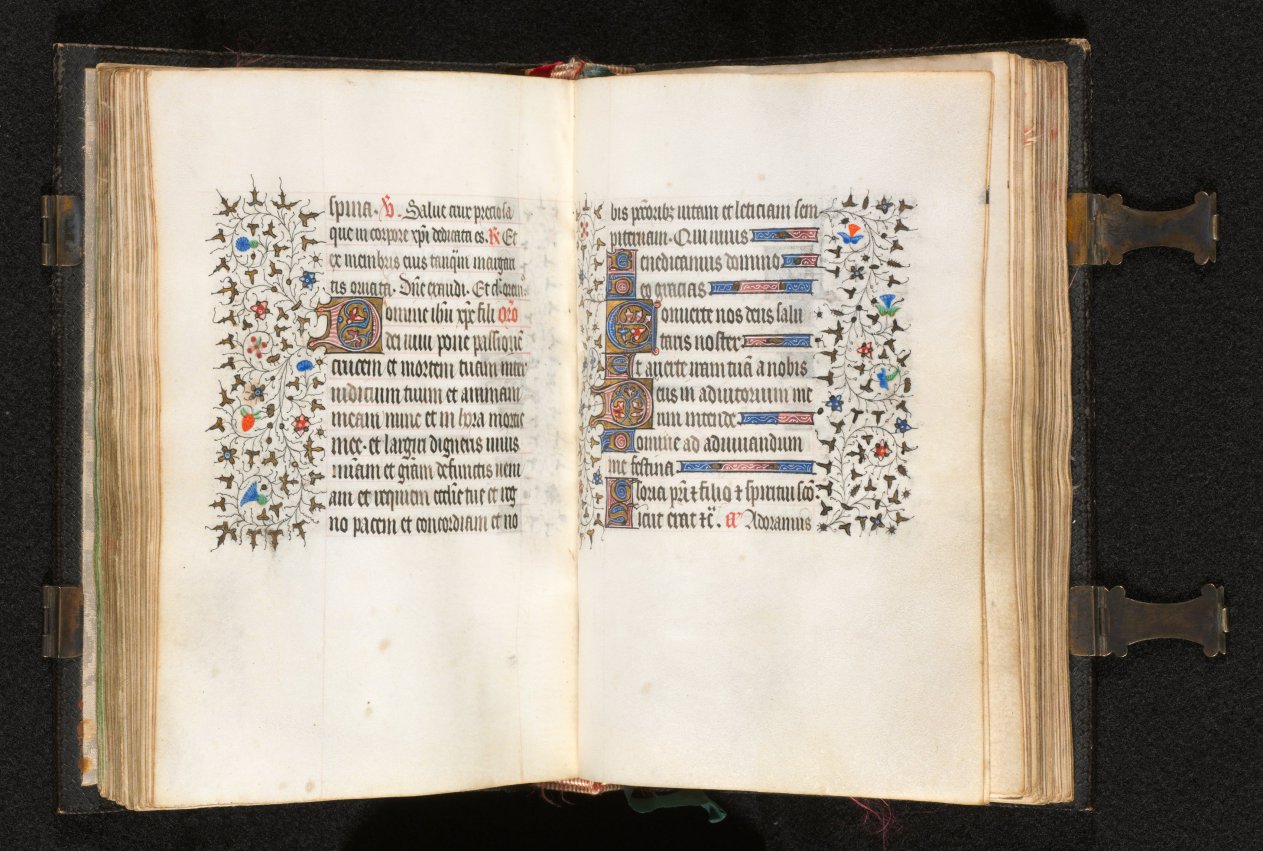 spina. V. Salue crux preciosa
que in corpore xpi dedicata es. R. Et
ex membris eius tanq̄m margari
tis ornata. Dn̄e exaudi. Et clamor
Domine ihu xpe fili oro
dei uiui pone passionē
crucem et mortem tuam inter
iudicium tuum et animam
meam nunc et in hora mortis
mee. et largiri digneris uiuis
m̄iam et grām defunctis ueni
am et requiem eccl̄ie tue et reg
no pacem et concordiam et no
bis pctōribz uitam et leticiam sem
piternam. Qui uiuis
Benedicamus domino
Deo gracias
Conuerte nos deus salu
taris noster
Et auerte iram tuā a nobis
Deus in adiutorium me
um intende
Domine ad adiuuandum
me festina
Gloria pr̄i ⁊ filio ⁊ spiritui sc̄o.
Sicut erat ⁊c̄. a Adoramus